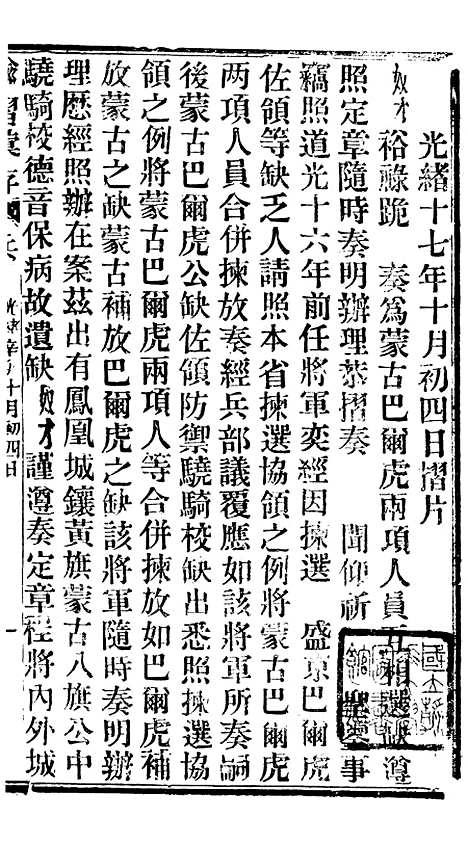 光緒十七年十月初四日摺片
奴才裕祿跪　奏爲蒙古巴爾虎兩項人員互相選缺遵
照定章隨時奏明辦理恭摺奏　聞仰祈　聖鑒事
竊照道光十六年前任將軍奕經因揀選　盛京巴爾虎
佐領等缺乏人請照本省揀選協領之例將蒙古巴爾虎
兩項人員合併揀放奏經兵部議覆應如該將軍所奏嗣
後蒙古巴爾虎公缺佐領防禦驍騎校缺出悉照揀選協
領之例將蒙古巴爾虎兩項人等合併揀放如巴爾虎補
放蒙古之缺蒙古補放巴爾虎之缺該將軍隨時奏明辦
理歷經照辦在案茲出有鳳凰城鑲黃旗蒙古八旗公中
驍騎校德音保病故遺缺奴才謹遵奏定章程將內外城
光緒辛卯十月初四日
一
國立